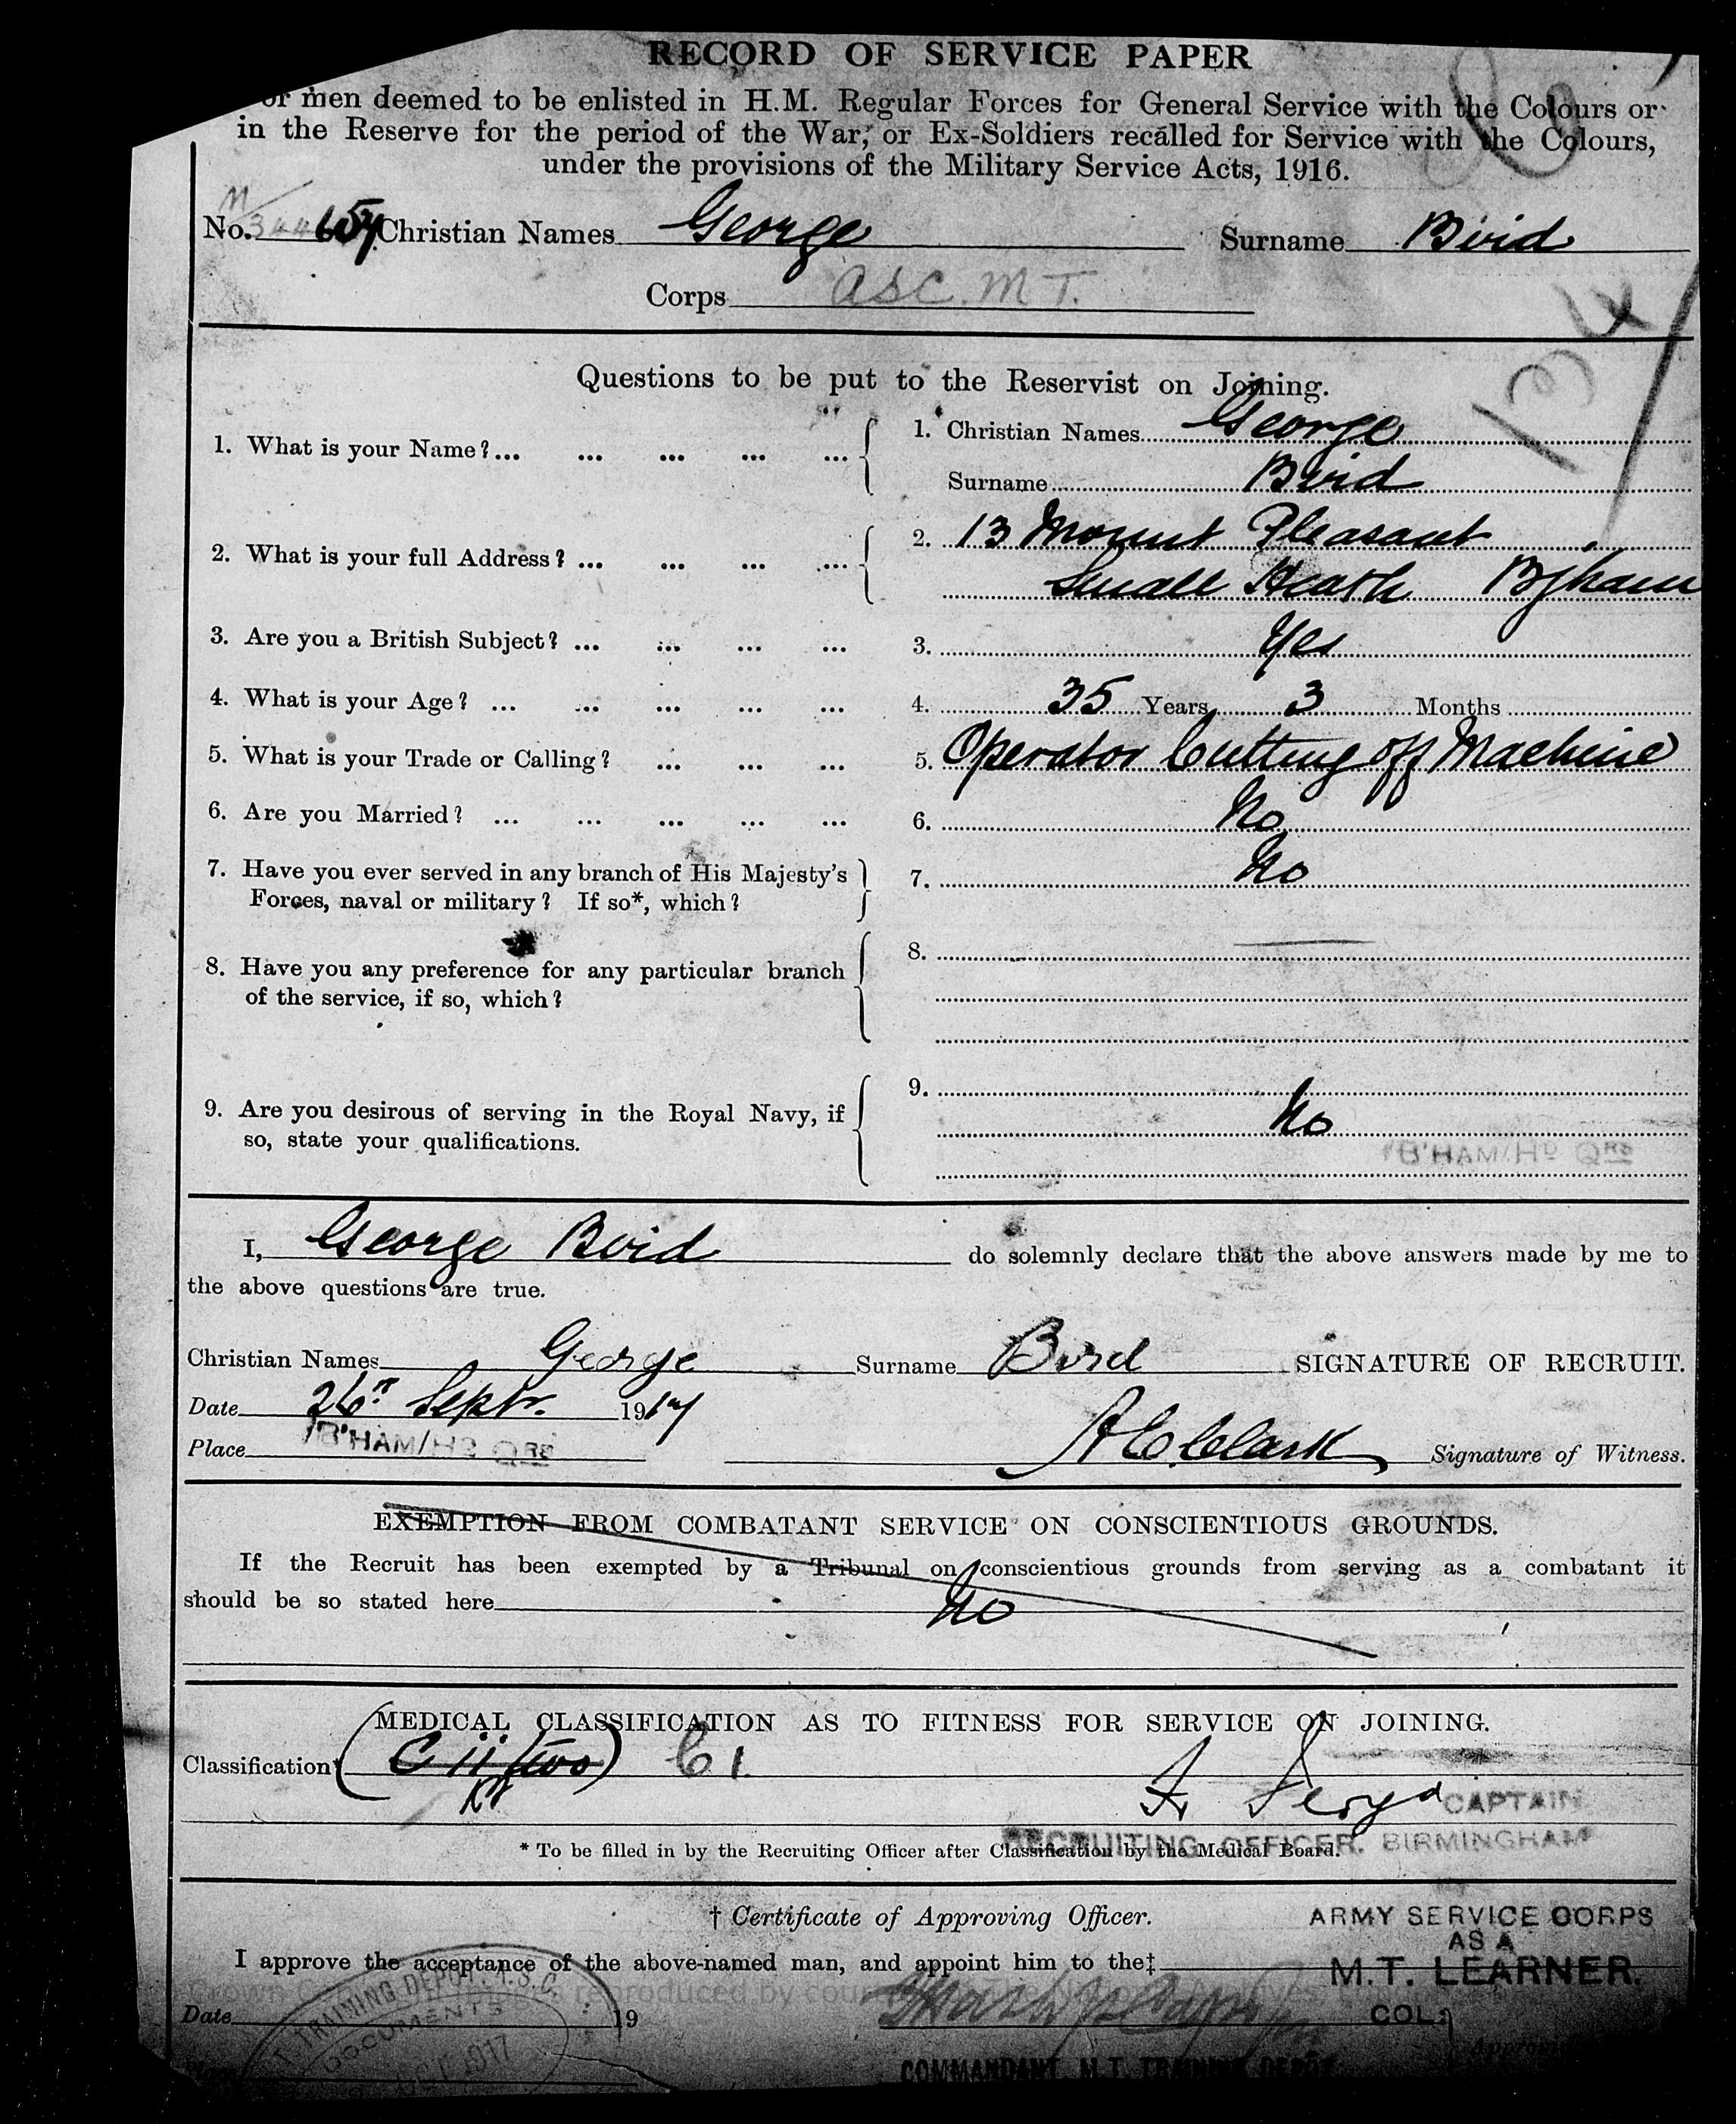 RECORD OF SERVICE PAPER
or men deemed to be enlisted in H.M. Regular Forces for General Service with the Colours or
in the Reserve for the period of the War, or Ex-Soldiers recalled for Service with the Colours,
under the provisions of the Military Service Acts, 1916.
M/
No. 344657 Christian Names George Surname Bird
Corps ASC. M T.
134
Questions to be put to the Reservist on Joining.
1. What is your Name? ... ... ... ... ... 1. Christian Names George
Surname Bird
2. What is your full Address? ... ... ... ... 2. 13 Mount Pleasant
Small Heath B'ham
3. Are you a British Subject? ... ... ... ... 3. Yes
4. What is your Age? ... ... ... ... ... 4. 35 Years 3 Months
5. What is your Trade or Calling? ... ... ... 5. Operator Cutting off Machine
6. Are you Married? ... ... ... ... ... 6. No
7. Have you ever served in any branch of His Majesty's 7. No
Forces, naval or military? If so*, which?
8. Have you any preference for any particular branch 8. —
of the service, if so, which?
9. Are you desirous of serving in the Royal Navy, if 9. No
so, state your qualifications.
B'HAM/HD QRS
I, George Bird do solemnly declare that the above answers made by me to
the above questions are true.
Christian Names George Surname Bird SIGNATURE OF RECRUIT.
Date 26th Septr. 1917
Place B'HAM/HD QRS A C Clark Signature of Witness.
EXEMPTION FROM COMBATANT SERVICE ON CONSCIENTIOUS GROUNDS.
If the Recruit has been exempted by a Tribunal on conscientious grounds from serving as a combatant it
should be so stated here No
MEDICAL CLASSIFICATION AS TO FITNESS FOR SERVICE ON JOINING.
Classification* (C ii (two) C1.
CAPTAIN
RECRUITING OFFICER. BIRMINGHAM
* To be filled in by the Recruiting Officer after Classification by the Medical Board.
† Certificate of Approving Officer.
ARMY SERVICE CORPS
AS A
I approve the acceptance of the above-named man, and appoint him to the‡ M.T. LEARNER.
Date 19 COL:
TRAINING DEPOT. A.S.C.
DOCUMENTS
OCT 1917
COMMANDANT, M.T. TRAINING DEPOT